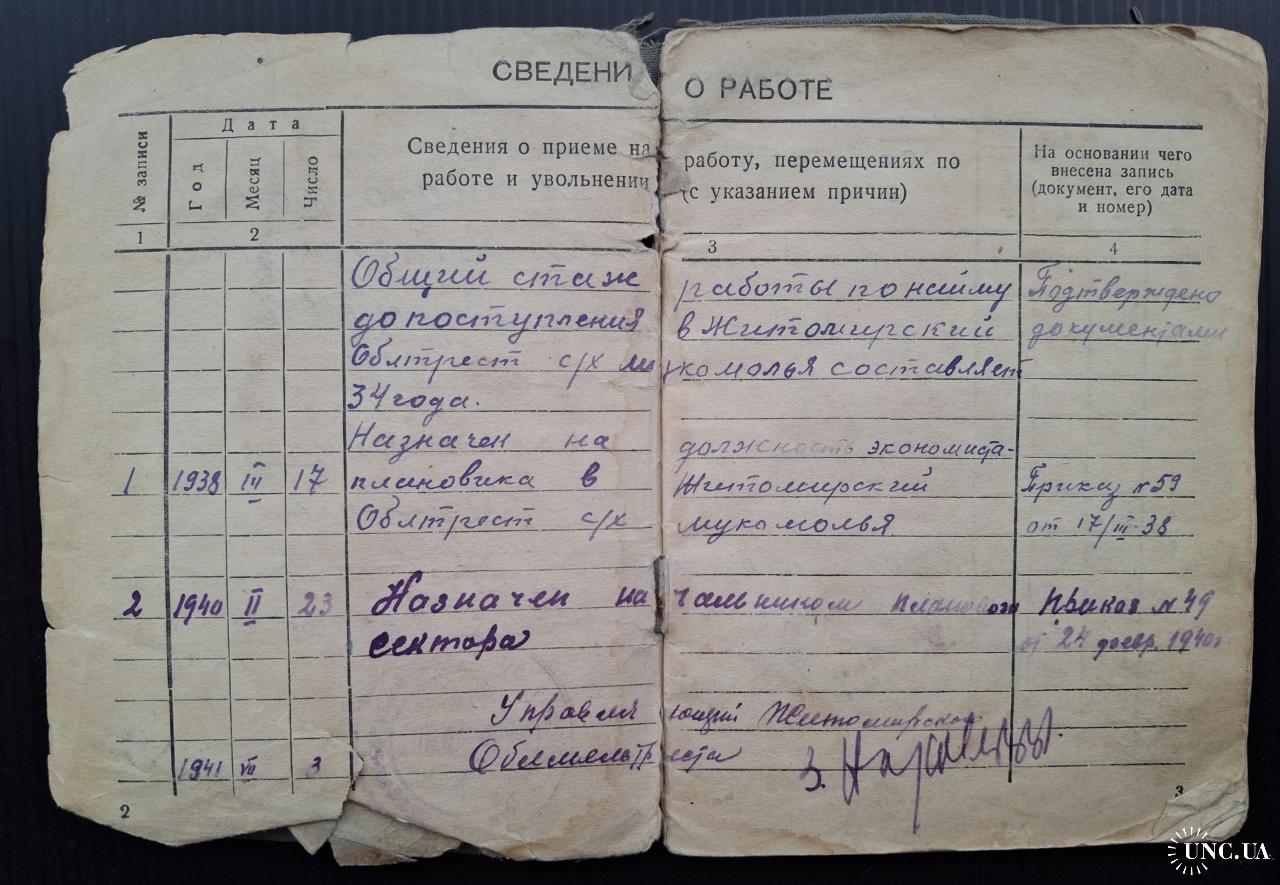 СВЕДЕНИ О РАБОТЕ
№ записи
Дата
Год
Месяц
Число
Сведения о приеме на работу, перемещениях по
работе и увольнении (с указанием причин)
На основании чего
внесена запись
(документ, его дата
и номер)
1 2 3 4
Общий стаж работы по найму Підтверждено
до поступления в Житомирский документами
Облтрест с/х мукомолья составляет
34 года.
Назначен на должность экономиста-
1 1938 III 17 плановика в Житомирский Приказ №59
Облтрест с/х мукомолья от 17/III-38
2 1940 II 23 Назначен начальником планового приказ №49
сектора от 24 1940г
Управляющий Житомирской
1941 VII 3 Облмельтреста
2
3
UNC.UA